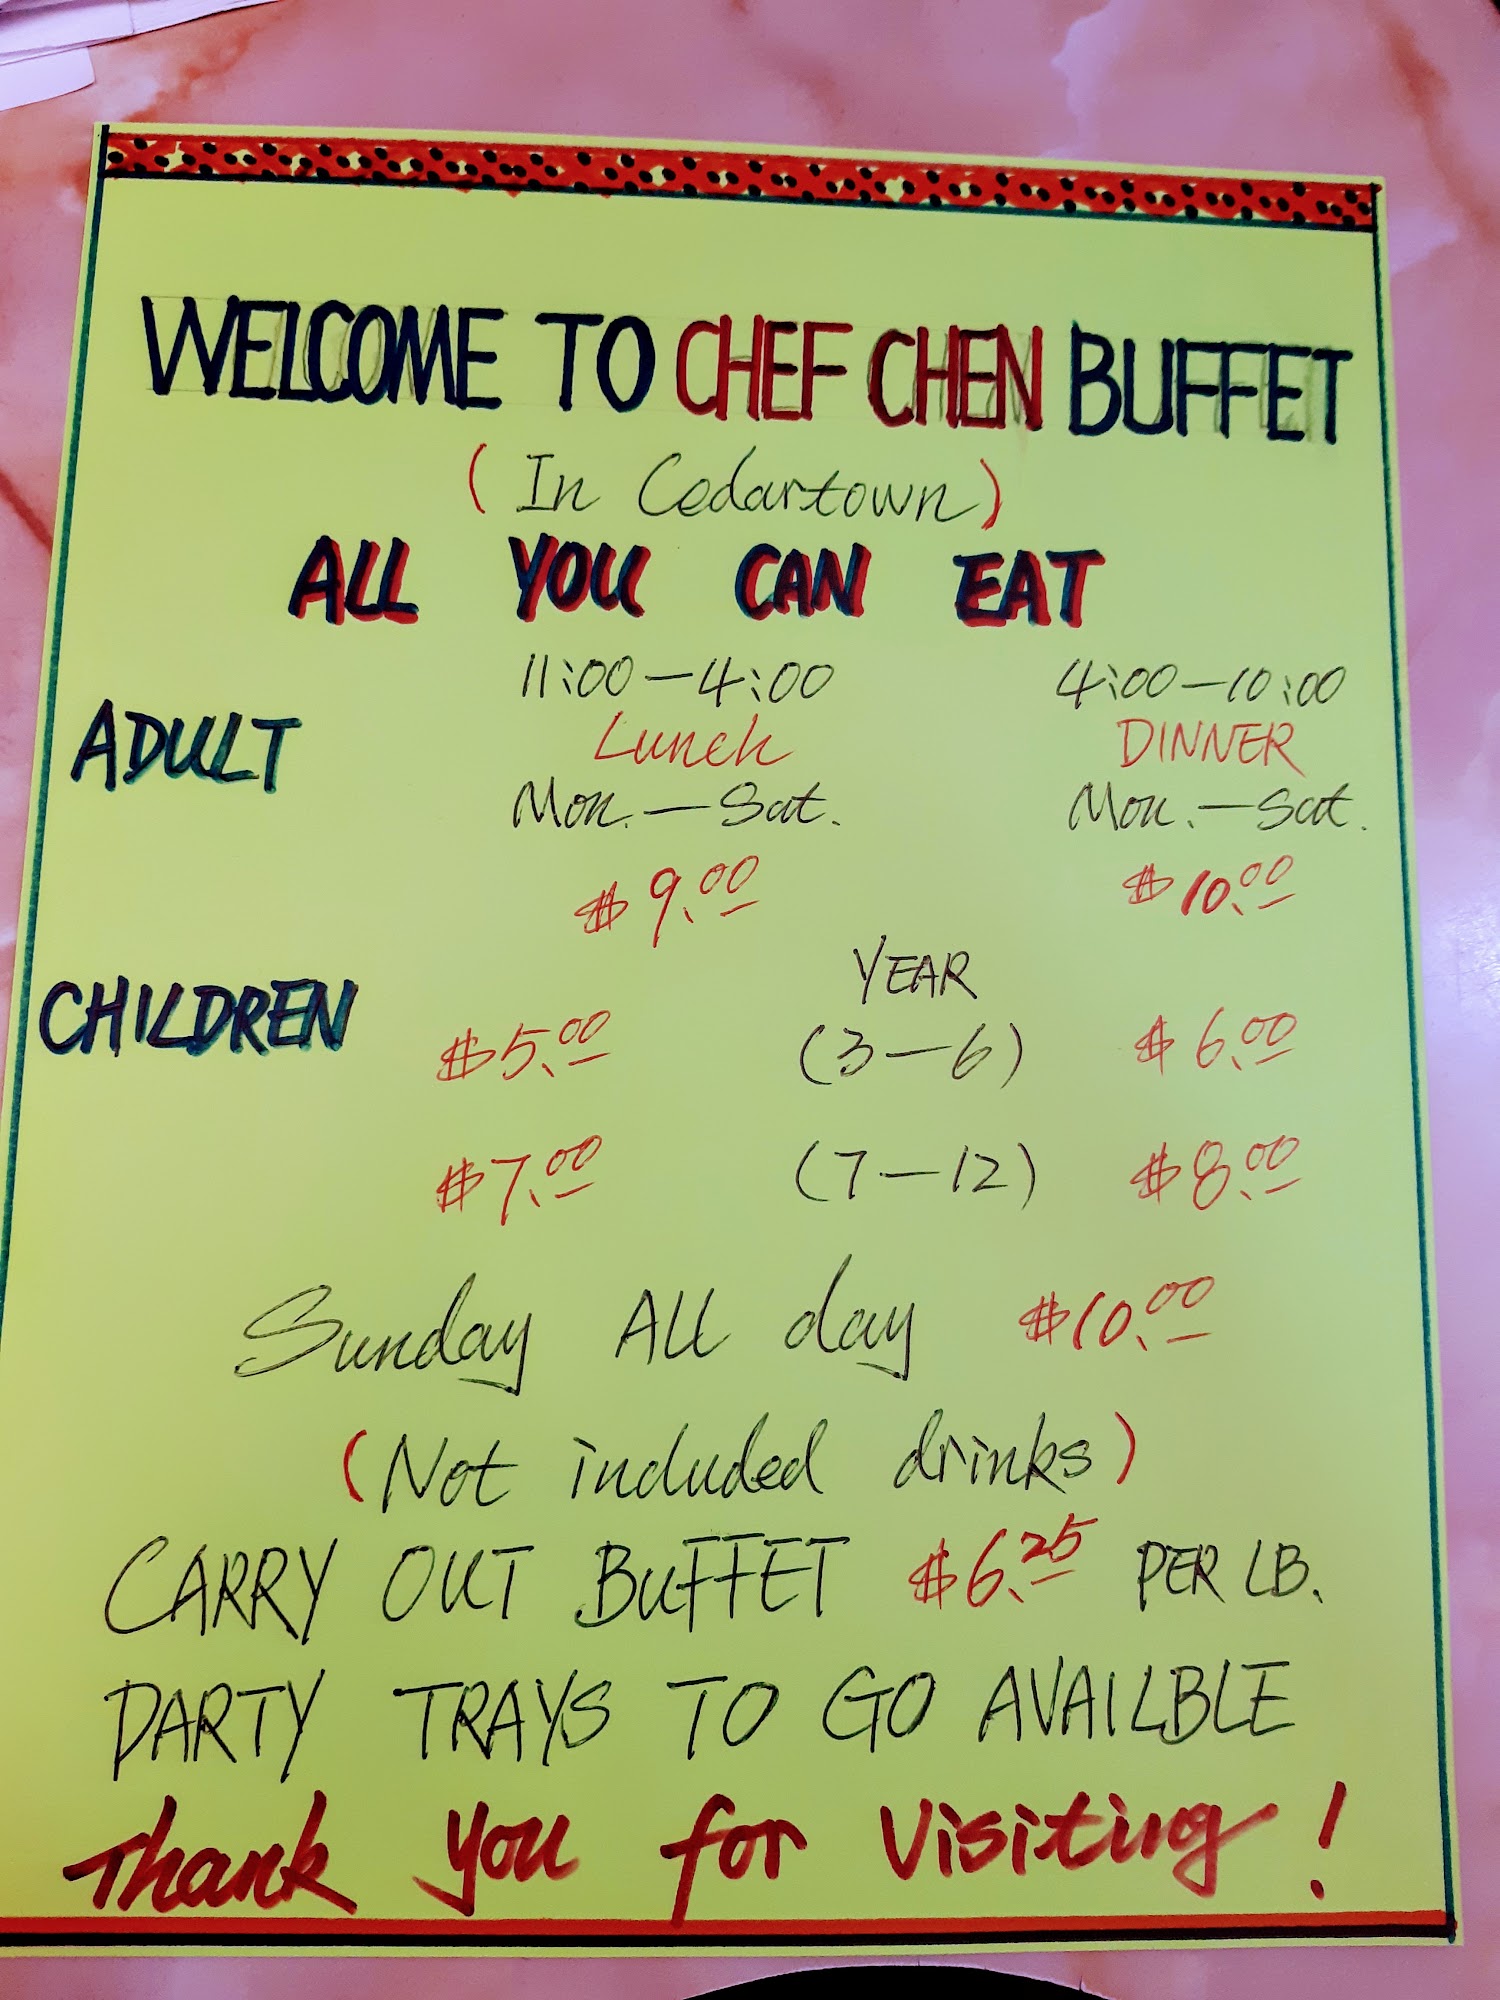 WELCOME TO CHEF CHEN BUFFET
(In Cedartown)
ALL YOU CAN EAT
11:00—4:00 4:00—10:00
ADULT Lunch DINNER
Mon.—Sat. Mon.—Sat.
$9.00 $10.00
YEAR
CHILDREN $5.00 (3—6) $6.00
$7.00 (7—12) $8.00
Sunday ALL day $10.00
(Not included drinks)
CARRY OUT BUFFET $6.25 PER LB.
PARTY TRAYS TO GO AVAILBLE
Thank you for Visiting!